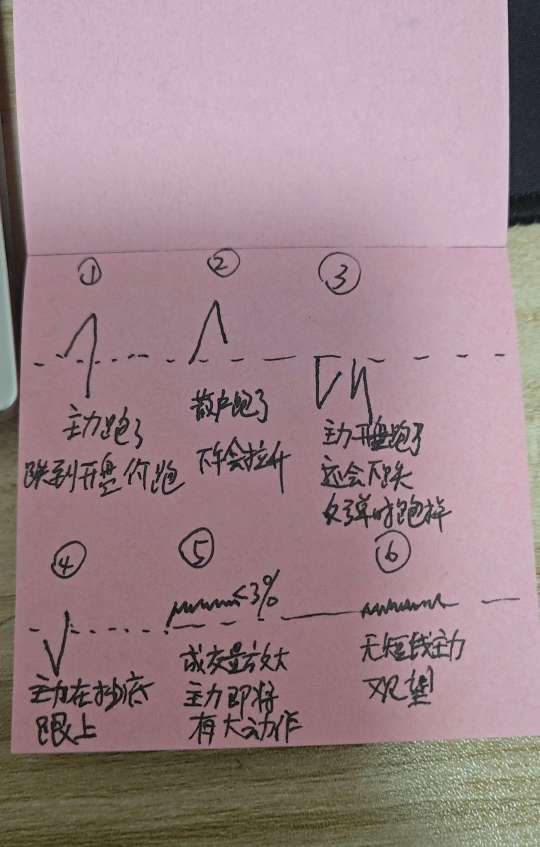 ①
②
③
主力跑了
跌到开盘价跑
散户跑了
下午会拉升
主力开盘跑了
还会下跌
反弹时跑掉
④
⑤
⑥
主力在抄底
跟上
<3%
成交量放大
主力即将
有大动作
无短线主力
观望